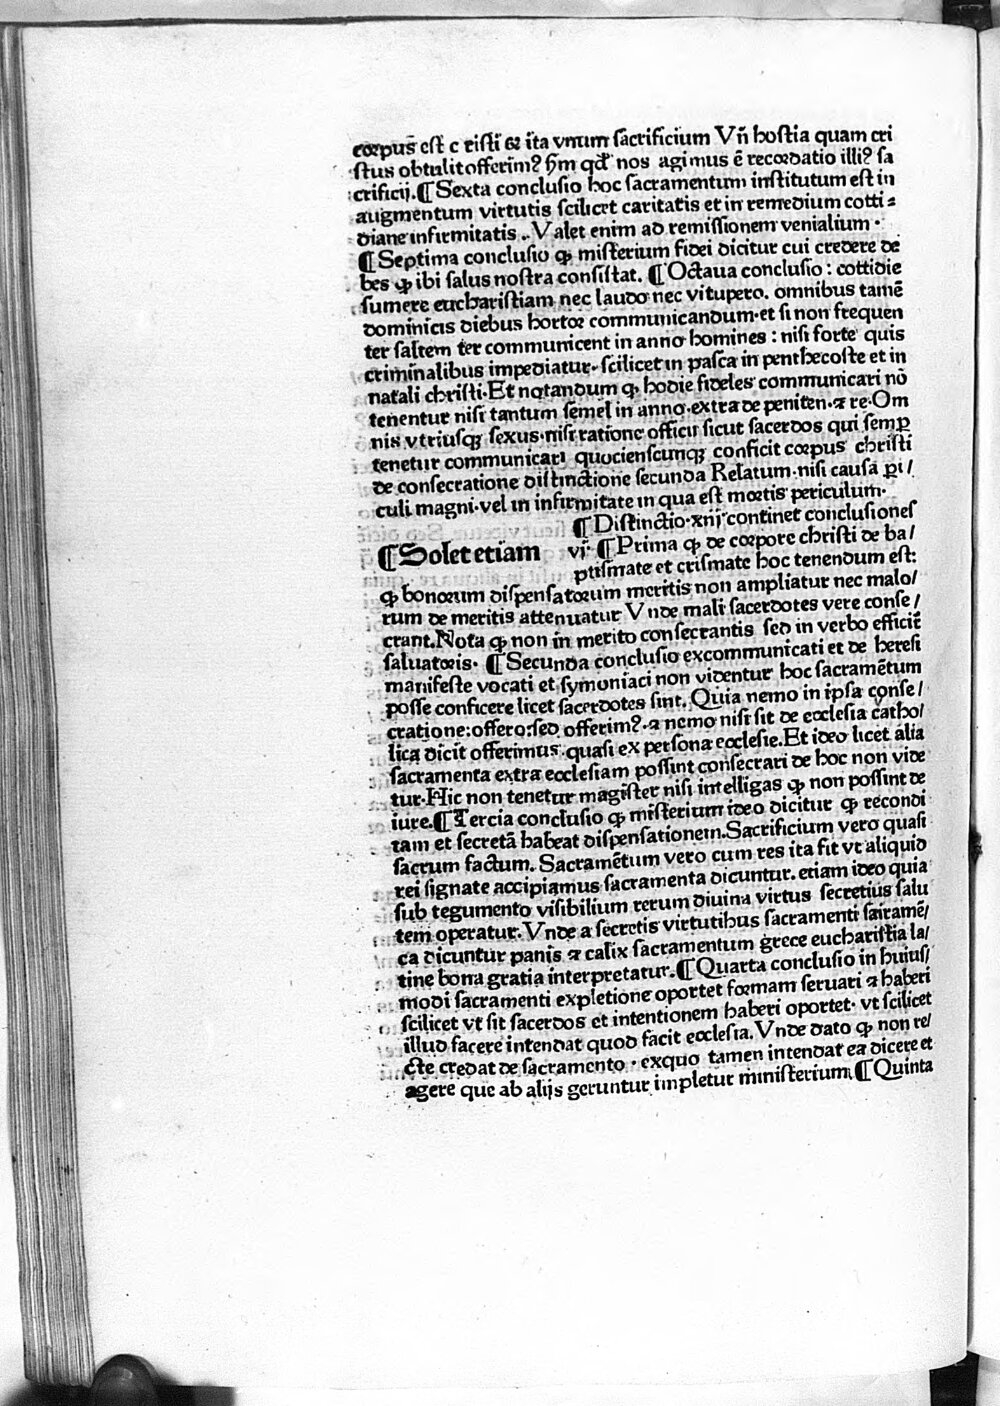 corpus̄ est c risti ⁊ ita vnum sacrificium Vn̄ hostia quam cri
stus obtulit offerim⁹ h̄m qd̛ nos agimus ē recordatio illi⁹ sa
crificij. ¶ Sexta conclusio hoc sacramentum institutum est in
augmentum virtutis scilicet caritatis et in remedium cotti⸗
diane infirmitatis .. Valet enim ad remissionem venialium ·
¶ Septima conclusio ꝙ misterium fidei dicitur cui credere de
bes ꝙ ibi salus nostra consistat. ¶ Octaua conclusio : cottidie
sumere eucharistiam nec laudo nec vitupero. omnibus tamē
dominicis diebus hortor communicandum·et si non frequen
ter saltem ter communicent in anno homines : nisi forte quis
criminalibus impediatur· scilicet in pasca in penthecoste et in
natali christi·Et notandum ꝙ hodie fideles communicari nō
tenentur nisi tantum semel in anno·extra de peniten·⁊ re·Om
nis vtriusqꝫ sexus·nisi ratione officii sicut sacerdos qui semꝑ
tenetur communicari quocienscunqꝫ conficit corpus christi
de consecratione distinctione secunda Relatum·nisi causa ꝑi/
culi magni·vel in infirmitate in qua est mortis periculum·
¶ Distinctio·xiij·continet conclusiones
¶ Solet etiam vij· ¶ Prima ꝙ de corpore christi de ba/
ptismate et crismate hoc tenendum est:
ꝙ bonorum dispensatorum meritis non ampliatur nec malo/
rum de meritis attenuatur Vnde mali sacerdotes vere conse/
crant.Nota ꝙ non in merito consecrantis sed in verbo efficit̄
saluatoris· ¶ Secunda conclusio excommunicati et de heresi
manifeste vocati et symoniaci non videntur hoc sacramētum
posse conficere licet sacerdotes sint. Quia nemo in ipsa conse/
cratione:offero:sed offerim⁹·⁊ nemo nisi sit de ecclesia catho/
lica dicit offerimus quasi ex persona ecclesie.Et ideo licet alia
sacramenta extra ecclesiam possint consecrari de hoc non vide
tur·Hic non tenetur magister nisi intelligas ꝙ non possint de
iure. ¶ Tercia conclusio ꝙ misterium ideo dicitur ꝙ recondi
tam et secretā habeat dispensationem.Sacrificium vero quasi
sacrum factum. Sacramētum vero cum res ita fit vt aliquid
rei signate accipiamus sacramenta dicuntur. etiam ideo quia
sub tegumento visibilium rerum diuina virtus secretius salu
tem operatur. Vnde a secretis virtutibus sacramenti sacramē/
ca dicuntur panis ⁊ calix sacramentum grece eucharistia la/
tine bona gratia interpretatur. ¶ Quarta conclusio in huius/
modi sacramenti expletione oportet formam seruari ⁊ haberi
scilicet vt sit sacerdos et intentionem haberi oportet· vt scilicet
illud facere intendat quod facit ecclesia. Vnde dato ꝙ non re/
cte credat de sacramento · exquo tamen intendat ea dicere et
agere que ab alijs geruntur impletur ministerium ¶ Quinta